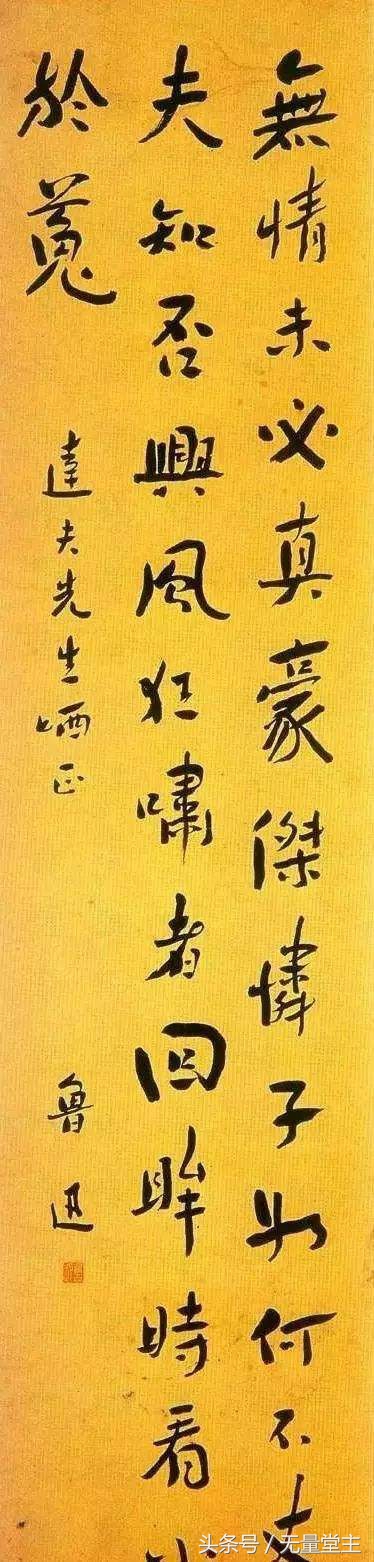 無情未必真豪傑憐子如何不丈
夫知否興風狂嘯者回眸時看小
於菟
達夫先生哂正
魯迅
头条号 / 无量堂主